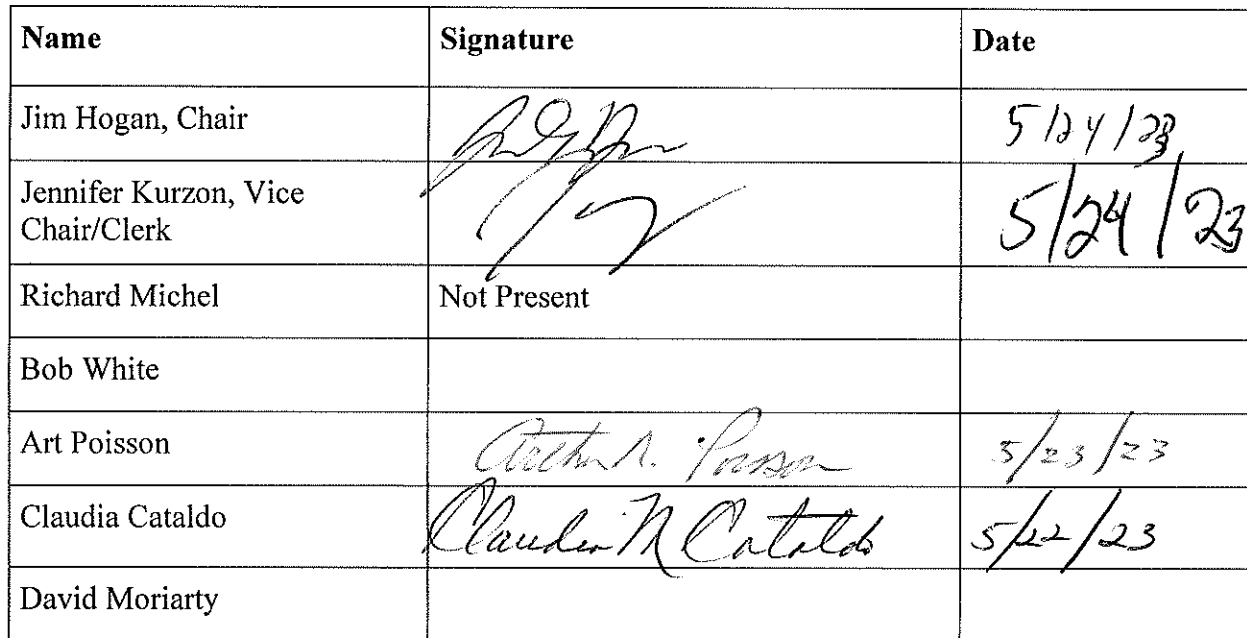 Name Signature Date
Jim Hogan, Chair 5/24/23
Jennifer Kurzon, Vice
Chair/Clerk 5/24/23
Richard Michel Not Present
Bob White
Art Poisson Arthur R. Poisson 5/23/23
Claudia Cataldo Claudia M Cataldo 5/22/23
David Moriarty